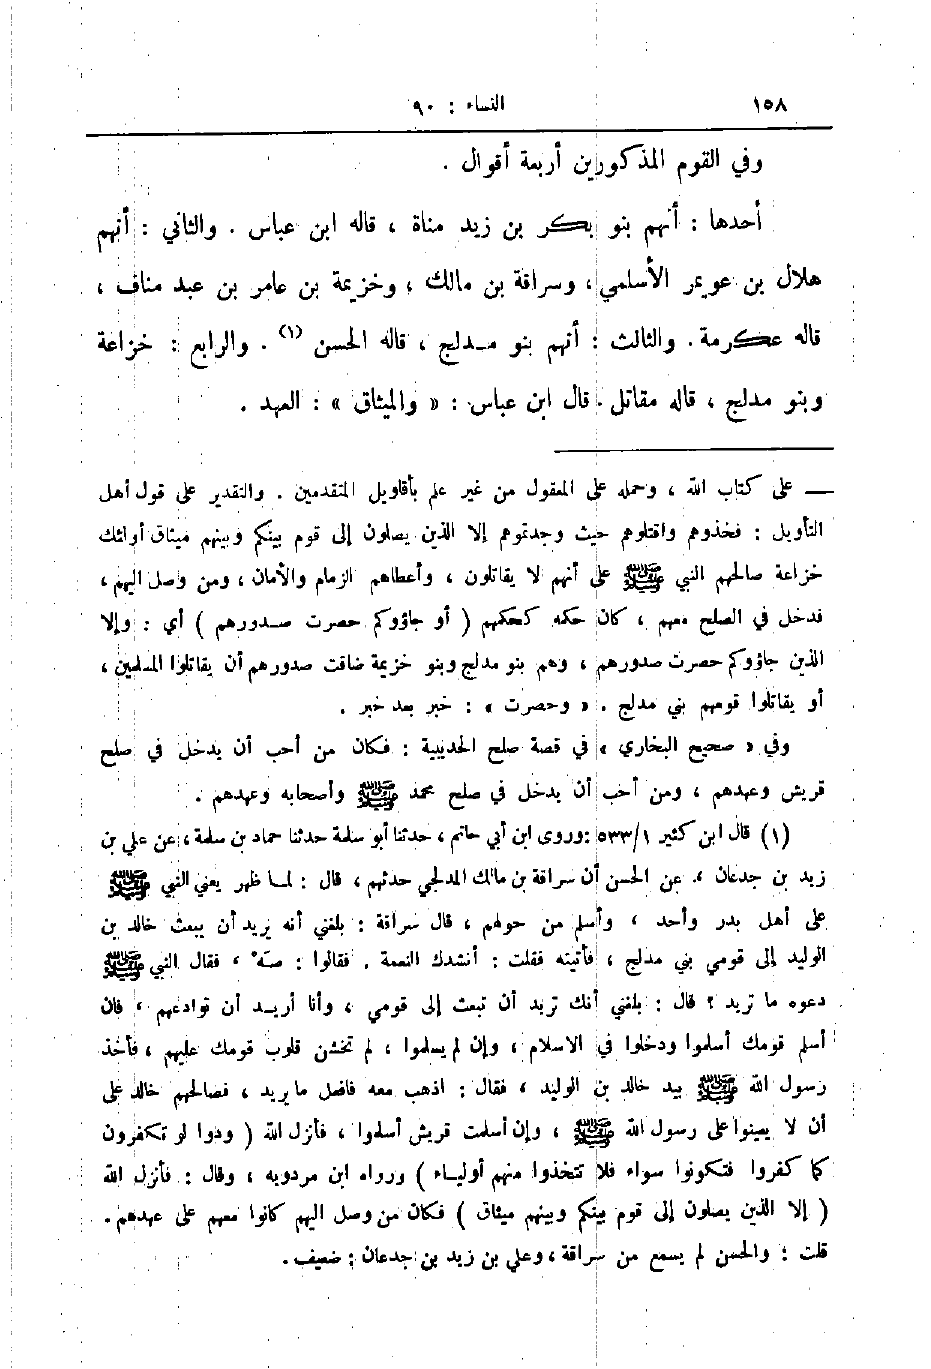 ١٥٨
النساء : ٩٠
وفي القوم المذكورين أربعة أقوال .
أحدها : أنهم بنو بكر بن زيد مناة ، قاله ابن عباس . والثاني : أنهم
هلال بن عويمر الأسلمي ، وسراقة بن مالك ، وخزيمة بن عامر بن عبد مناف ،
قاله عكرمة . والثالث : أنهم بنو مدلج ، قاله الحسن (١) . والرابع : خزاعة
وبنو مدلج ، قاله مقاتل . قال ابن عباس : « والميثاق » : العهد .
— على كتاب الله ، وحمله على المعقول من غير علم بأقاويل المتقدمين . والتقدير على قول أهل
التأويل : فخذوهم واقتلوهم حيث وجدتموهم إلا الذين يصلون إلى قوم بينكم وبينهم ميثاق أولئك
خزاعة صالحهم النبي ﷺ على أنهم لا يقاتلون ، وأعطاهم الزمام والأمان ، ومن وصل اليهم ،
فدخل في الصلح معهم ، كان حكمه كحكمهم ( أو جاؤوكم حصرت صدورهم ) أي : وإلا
الذين جاؤوكم حصرت صدورهم ، وهم بنو مدلج وبنو خزيمة ضاقت صدورهم أن يقاتلوا المسلمين ،
أو يقاتلوا قومهم بني مدلج . « وحصرت » : خبر بعد خبر .
وفي « صحيح البخاري » في قصة صلح الحديبية : فكان من أحب أن يدخل في صلح
قريش وعهدهم ، ومن أحب أن يدخل في صلح محمد ﷺ وأصحابه وعهدهم .
(١) قال ابن كثير ٥٣٣/١ : وروى ابن أبي حاتم ، حدثنا أبو سلمة حدثنا حماد بن سلمة ، عن علي بن
زيد بن جدعان ، عن الحسن أن سراقة بن مالك المدلجي حدثهم ، قال : لما ظهر يعني النبي ﷺ
على أهل بدر وأحد ، وأسلم من حولهم ، قال سراقة : بلغني أنه يريد أن يبعث خالد بن
الوليد إلى قومي بني مدلج ، فأتيته فقلت : أنشدك النعمة . فقالوا : صَهْ ، فقال النبي ﷺ
دعوه ما تريد ؟ قال : بلغني أنك تريد أن تبعث إلى قومي ، وأنا أريد أن توادعهم ، فان
أسلم قومك أسلموا ودخلوا في الاسلام ، وإن لم يسلموا ، لم تخشن قلوب قومك عليهم ، فأخذ
رسول الله ﷺ بيد خالد بن الوليد ، فقال : اذهب معه فافعل ما يريد ، فصالحهم خالد على
أن لا يعينوا على رسول الله ﷺ ، وإن أسلمت قريش أسلموا ، فأنزل الله ( ودوا لو تكفرون
كما كفروا فتكونوا سواء فلا تتخذوا منهم أولياء ) ورواه ابن مردويه ، وقال : فأنزل الله
( إلا الذين يصلون إلى قوم بينكم وبينهم ميثاق ) فكان من وصل اليهم كانوا معهم على عهدهم .
قلت : والحسن لم يسمع من سراقة ، وعلي بن زيد بن جدعان : ضعيف .